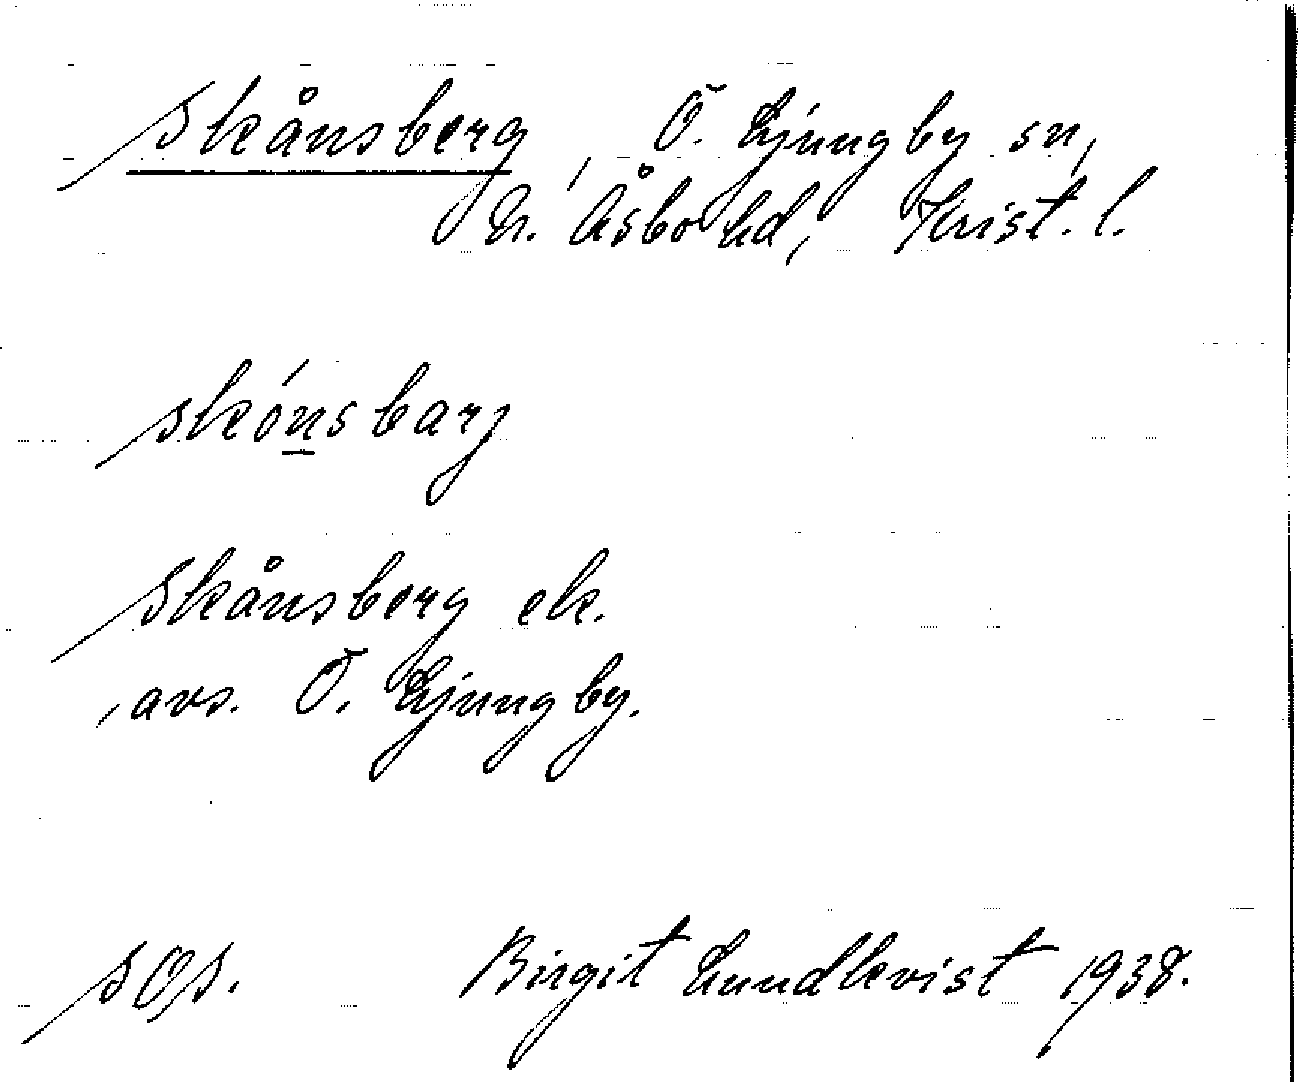 Skånsberg, Ö. Ljungby sn,
N. Åsbo hd, Krist. l.
skón̲sbarj
Skånsberg ek.
avs. Ö. Ljungby.
SOS. Birgit Lundkvist 1938.